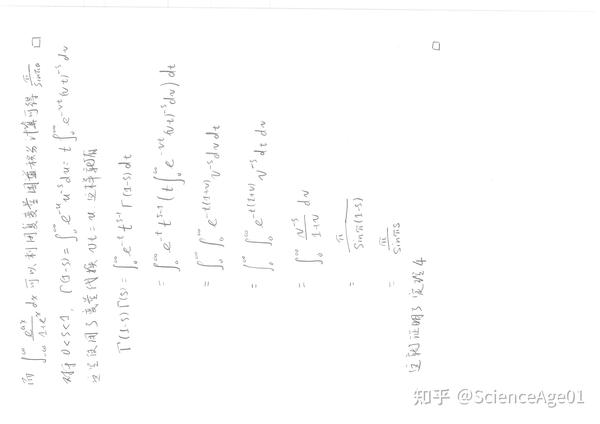 而 ∫_{-∞}^{∞} e^{ax}/(1+e^x) dx 可以利用复变量围道积分计算可得 π/sinπa □
对于 0<s<1, Γ(1-s) = ∫_0^∞ e^{-u} u^{-s} du = t∫_0^∞ e^{-vt} (vt)^{-s} dv
这里使用了变量代换 vt = u 这样就有
Γ(1-s)Γ(s) = ∫_0^∞ e^{-t} t^{s-1} Γ(1-s) dt
= ∫_0^∞ e^{-t} t^{s-1} (t∫_0^∞ e^{-vt} (vt)^{-s} dv) dt
= ∫_0^∞ ∫_0^∞ e^{-t(1+v)} v^{-s} dv dt
= ∫_0^∞ ∫_0^∞ e^{-t(1+v)} v^{-s} dt dv
= ∫_0^∞ v^{-s}/(1+v) dv
= π/sinπ(1-s)
= π/sinπs
这就证明了定理4 □
知乎 @ScienceAge01